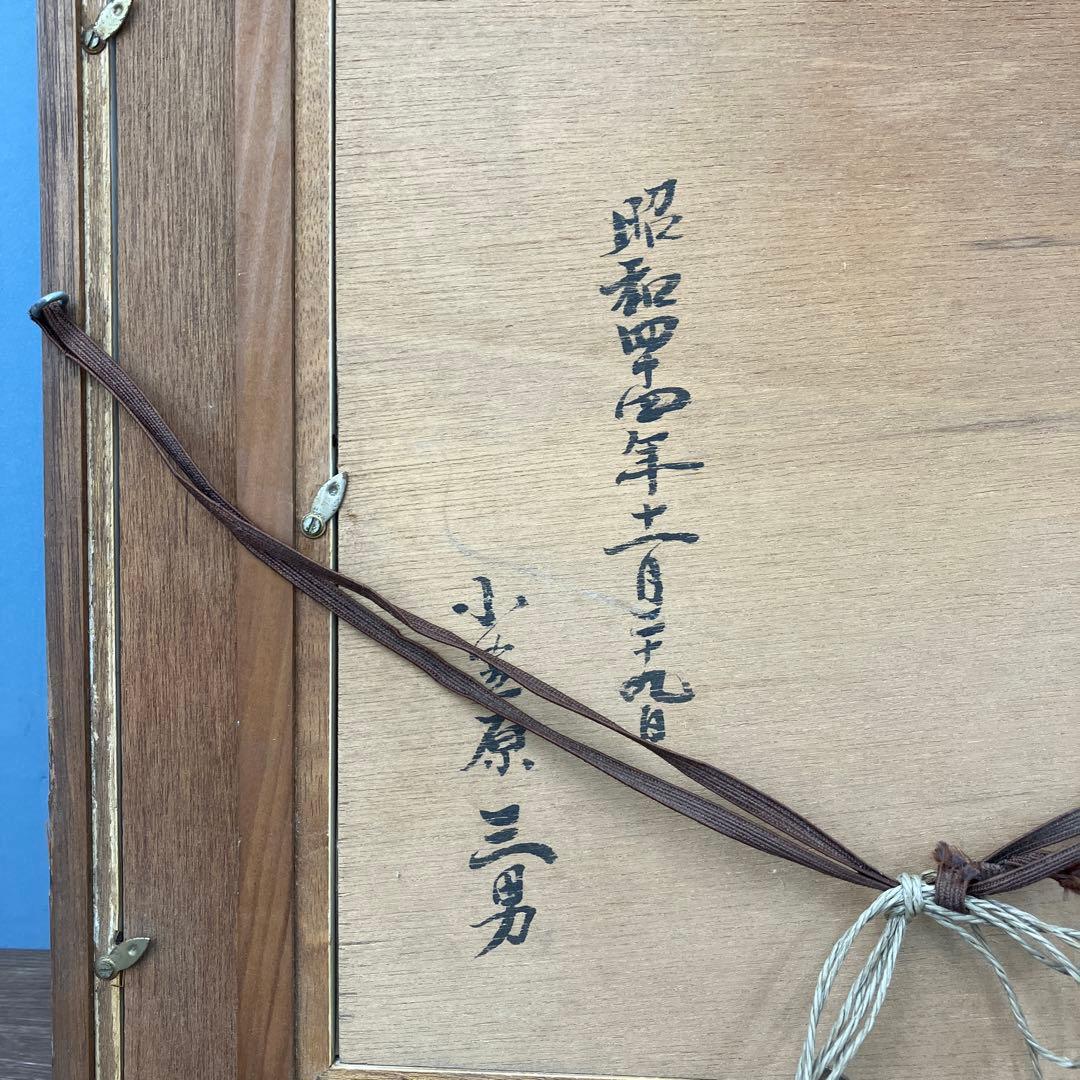 昭和四十四年十一月二十九日
小笠原 三男